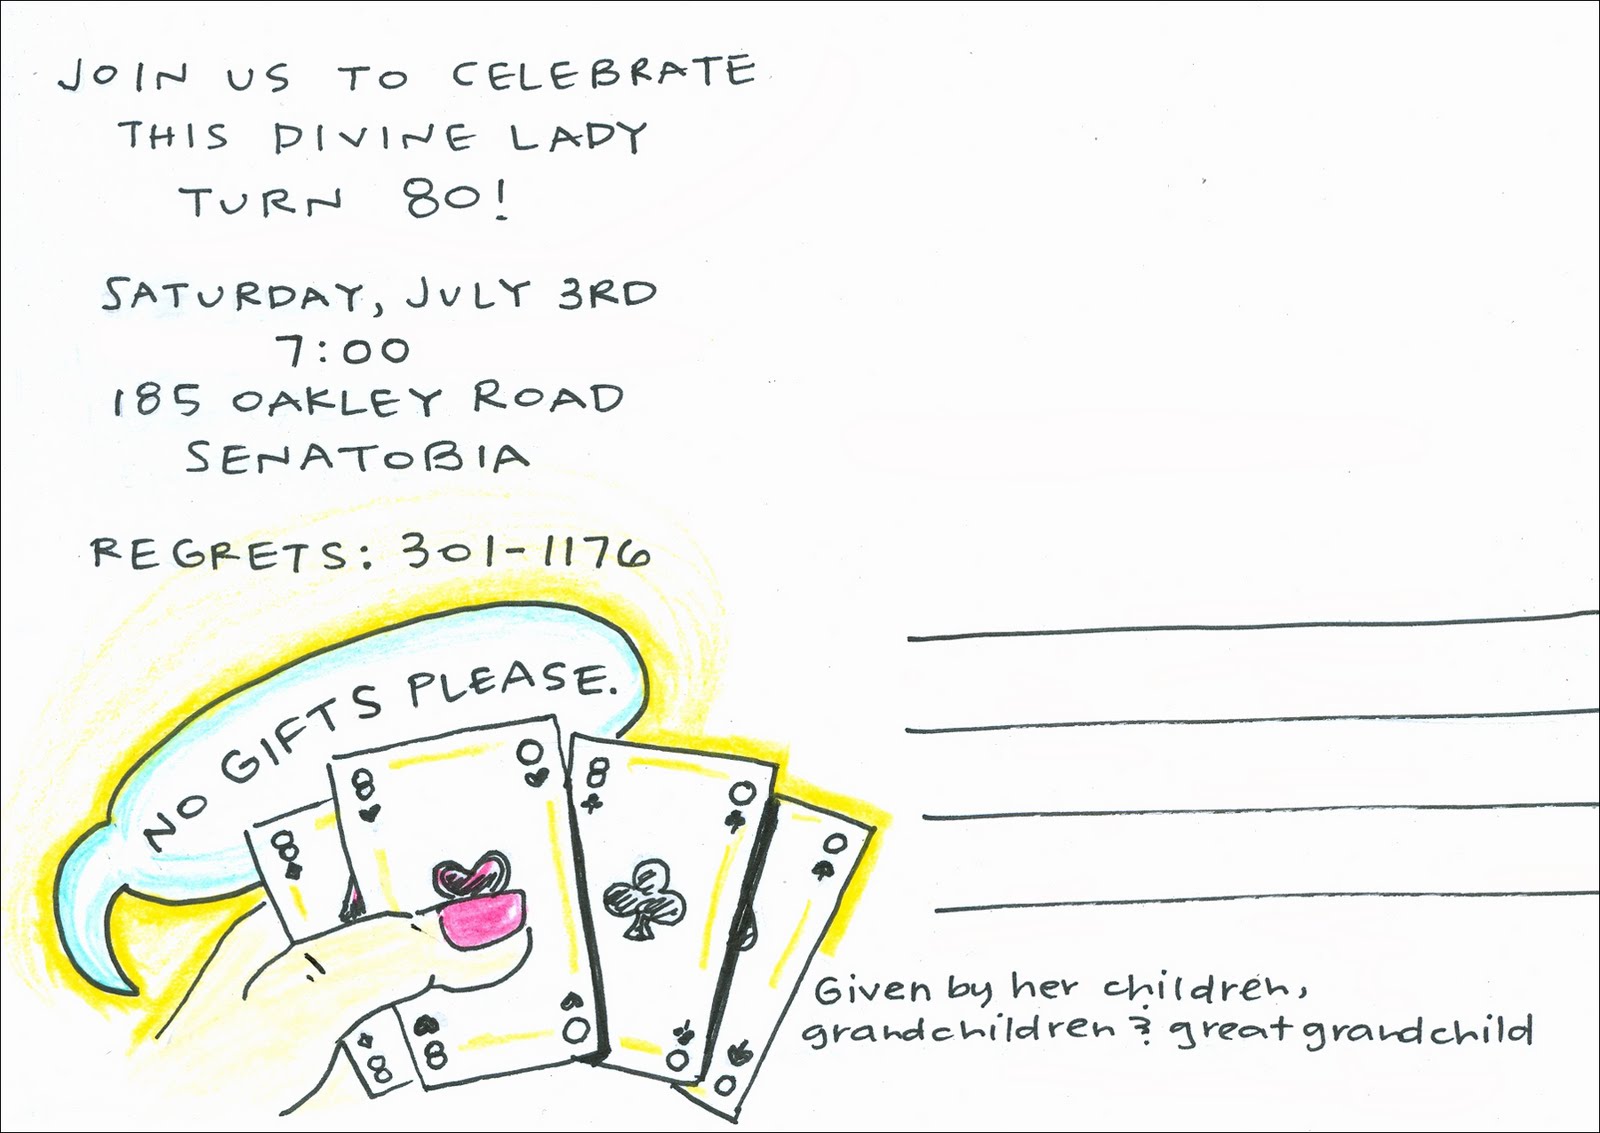 JOIN US TO CELEBRATE
THIS DIVINE LADY
TURN 80!
SATURDAY, JULY 3RD
7:00
185 OAKLEY ROAD
SENATOBIA
REGRETS: 301-1176
NO GIFTS PLEASE.
8 0
8 0
8
0
8
0
8
0
0
Given by her children,
grandchildren & great grandchild